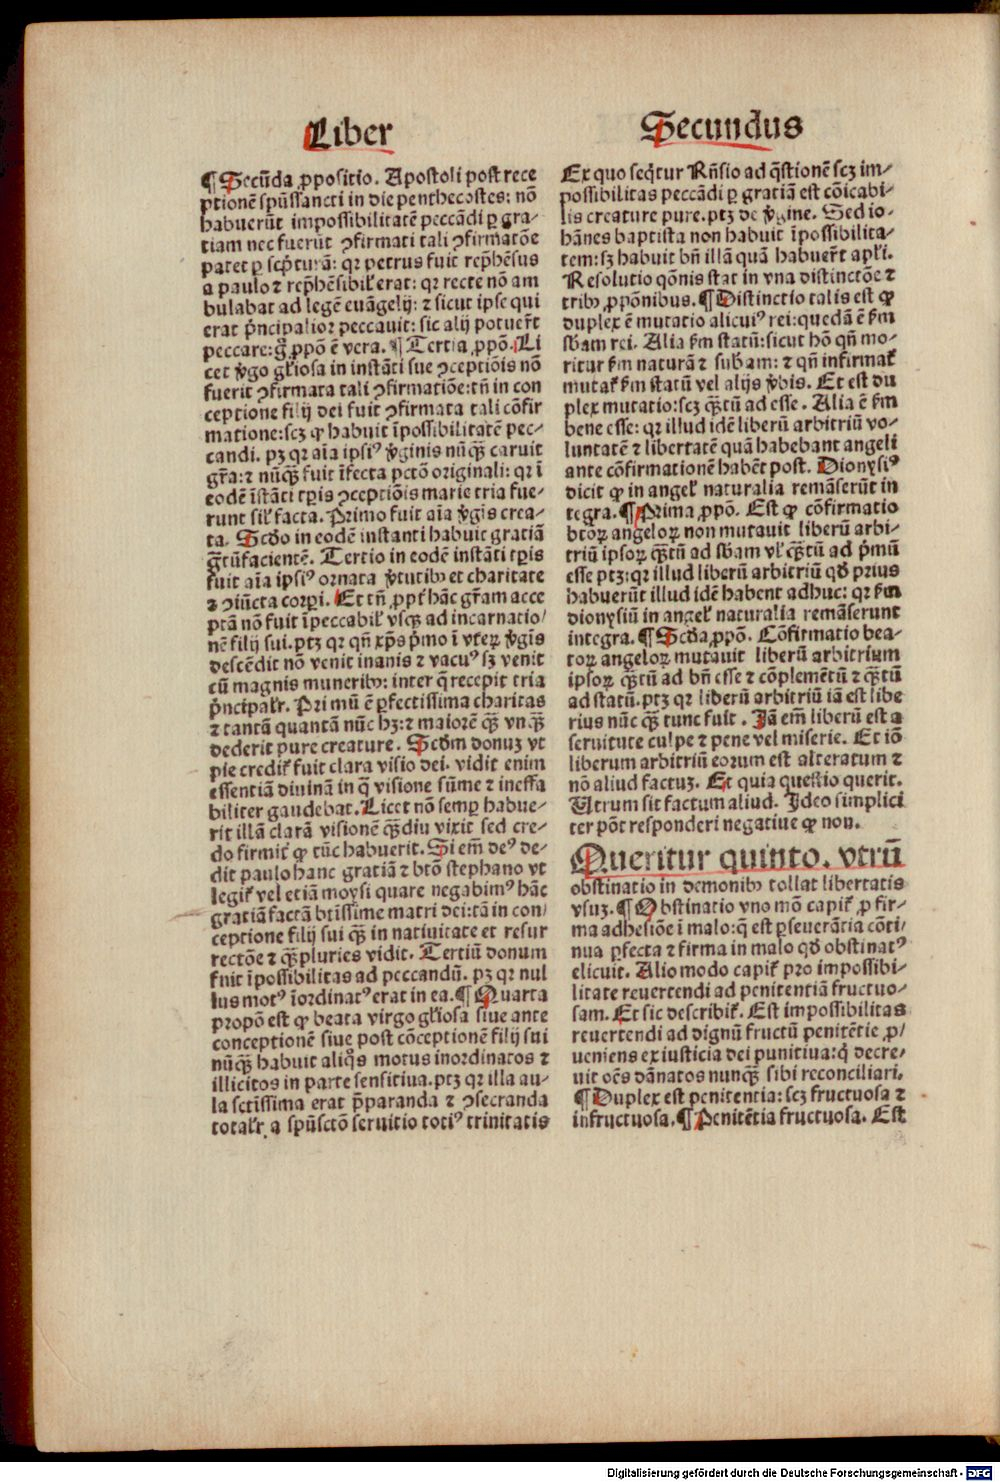 Liber
Secundus
¶ Secūda ꝓpositio. Apostoli post rece
ptionē spūssancti in die penthecostes: nō
habuerūt impossibilitatē peccādi ꝑ gra-
tiam nec fuerūt ꝯfirmati tali ꝯfirmatōe
patet ꝑ scp̄turā: qr petrus fuit rep̄hēsus
a paulo ⁊ rep̄hēsibil' erat: qr recte nō am
bulabat ad legē euāgelij: ⁊ sicut ipse qui
erat p̄ncipalior peccauit: sic alij potuer̄t
peccare: g̊ ꝓpō ē vera. ¶ Tertia ꝓpō. Li
cet v̄go gl'iosa in instāti sue ꝯceptiōis nō
fuerit ꝯfirmata tali ꝯfirmatiōe: tn̄ in con
ceptione filij dei fuit ꝯfirmata tali cōfir
matione: scꝫ ꝙ habuit īpossibilitatē pec-
candi. pꝫ qr aīa ipsiꝰ v̄ginis nūq̄ꝫ caruit
gr̄a: ⁊ nūq̄ꝫ fuit īfecta pctō originali: qr ī
eodē īstāti tꝑis ꝯceptiōis marie tria fue-
runt sil' facta. Primo fuit aīa v̄gis crea-
ta. Scdo in eodē instanti habuit gratiā
g̃tūfacientē. Tertio in eodē instāti tꝑis
fuit aīa ipsiꝰ ornata v̄tutibꝫ et charitate
⁊ ꝯiūcta corꝑi. Et tn̄ ꝓpt' hāc gr̄am acce
ptā nō fuit īpeccabil' vsqꝫ ad incarnatio/
nē filij sui. ptꝫ qr qn̄ xp̄s p̄mo ī vteꝝ v̄gis
descēdit nō venit inanis ⁊ vacuꝰ sꝫ venit
cū magnis muneribꝫ: inter q̄ recepit tria
p̄ncipalr. Pri mū ē ꝑfectissima charitas
⁊ tantā quantā nūc hꝫ: ⁊ maiorē q̄ꝫ vnq̄ꝫ
dederit pure creature. Scdm donuꝫ vt
pie credit' fuit clara visio dei. vidit enim
essentiā diuinā in q̄ visione sūme ⁊ ineffa
biliter gaudebat. Licet nō semꝑ habue-
rit illā clarā visionē q̄ꝫdiu vixit sed cre-
do firmit' ꝙ tūc habuerit. Si em̄ deꝰ de-
dit paulo hanc gratiā ⁊ btō stephano vt
legit' vel etiā moysi quare negabimꝰ hāc
gratiā factā btīssime matri dei: tā in con/
ceptione filij sui q̄ꝫ in natiuitate et resur
rectōe ⁊ q̄ꝫpluries vidit. Tertiū donum
fuit īpossibilitas ad peccandū. pꝫ qr nul
lus motꝰ īordinatꝰ erat in ea. ¶ Quarta
propō est ꝙ beata virgo gl'iosa siue ante
conceptionē siue post cōceptionē filij sui
nūq̄ꝫ habuit aliq̊s motus inordinatos ⁊
illicitos in parte sensitiua. ptꝫ qr illa au-
la sctīssima erat p̄paranda ⁊ ꝯsecranda
totalr a spūsctō seruitio totiꝰ trinitatis
Ex quo seq̄tur Rn̄sio ad q̄stionē scꝫ im-
possibilitas peccādi ꝑ gratiā est cōicabi-
lis creature pure. ptꝫ de v̄gine. Sed io-
hānes baptista non habuit īpossibilita-
tem: sꝫ habuit bn̄ illā quā habuer̄t apl'i.
Resolutio qōnis stat in vna distinctōe ⁊
tribꝫ ꝓpōnibus. ¶ Distinctio talis est ꝙ
duplex ē mutatio alicuiꝰ rei: quedā ē f̄m
sb̄am rei. Alia f̄m statū: sicut hō qn̄ mo-
ritur f̄m naturā ⁊ subam: ⁊ qn̄ infirmat'
mutat' f̄m statū vel alijs v̄bis. Et est du
plex mutatio: scꝫ q̄ꝫtū ad esse. Alia ē f̄m
bene esse: qr illud idē liberū arbitriū vo-
luntatē ⁊ libertatē quā habebant angeli
ante cōfirmationē habēt post. Dionysiꝰ
dicit ꝙ in angel' naturalia remāserūt in
tegra. ¶ Prima ꝓpō. Est ꝙ cōfirmatio
btoꝝ angeloꝝ non mutauit liberū arbi-
triū ipsoꝝ q̄ꝫtū ad sb̄am vl' q̄ꝫtū ad p̄mū
esse ptꝫ: qr illud liberū arbitriū qd̄ prius
habuerūt illud idē habent adhuc: qr f̄m
dionysiū in angel' naturalia remāserunt
integra. ¶ Scd̄a ꝓpō. Cōfirmatio bea-
toꝝ angeloꝝ mutauit liberū arbitrium
ipsoꝝ q̄ꝫtū ad bn̄ esse ⁊ cōplemētū ⁊ q̄ꝫtū
ad statū. ptꝫ qr liberū arbitriū iā est libe
rius nūc q̄ꝫ tunc fuit. Iā em̄ liberū est a
seruitute culpe ⁊ pene vel miserie. Et iō
liberum arbitriū eorum est alteratum ⁊
nō aliud factuꝫ. Et quia questio querit.
Utrum sit factum aliud. Ideo simplici
ter pōt responderi negatiue ꝙ non.
Queritur quinto. vtrū
obstinatio in demonibꝫ tollat libertatis
vsuꝫ. ¶ Obstinatio vno mō capit' ꝓ fir-
ma adhesiōe ī malo: q̄ est ꝑseuerātia cōti-
nua ꝑfecta ⁊ firma in malo qd̄ obstinatꝰ
elicuit. Alio modo capit' pro impossibi-
litate reuertendi ad penitentiā fructuo-
sam. Et sic describit'. Est impossibilitas
reuertendi ad dignū fructū penitētie ꝓ/
ueniens ex iusticia dei punitiua: q̄ decre-
uit oēs dānatos nunq̄ꝫ sibi reconciliari.
¶ Duplex est penitentia: scꝫ fructuosa ⁊
infructuosa. ¶ Penitētia fructuosa. Est
Digitalisierung gefördert durch die Deutsche Forschungsgemeinschaft - DFG